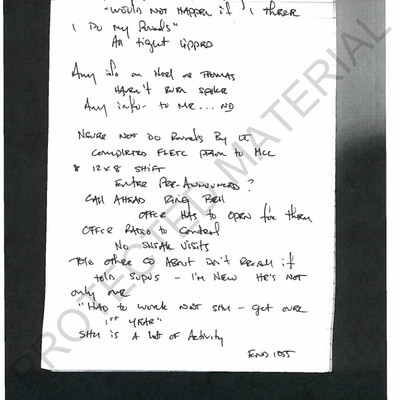 "WOULD NOT HAPPEN if I THERE
I Do my Rounds"
All tight lipped
Any info on Noel or THOMAS
HAVEN'T EVEN SPOKE
Any info - to ME... NO
NEVER NOT DO ROUNDS By
COMPLETED FLETC PRIOR to MCC
8 12x8 SHIFT
ENTER PRE-ANNOUNCED?
CALL AHEAD RING BELL
OFFCR HAS to OPEN for them
OFFCR RADIO to CONTROL
NO SNEAK VISITS
TOLD OTHER CO ABOUT DON'T RECALL if
told SUPVS - I'M NEW HE'S NOT
only one
"HAD to WORK NOT SHU - get OVER
1ST YEAR"
SHU is A lot of Activity
END 1055
PROTECTED MATERIAL